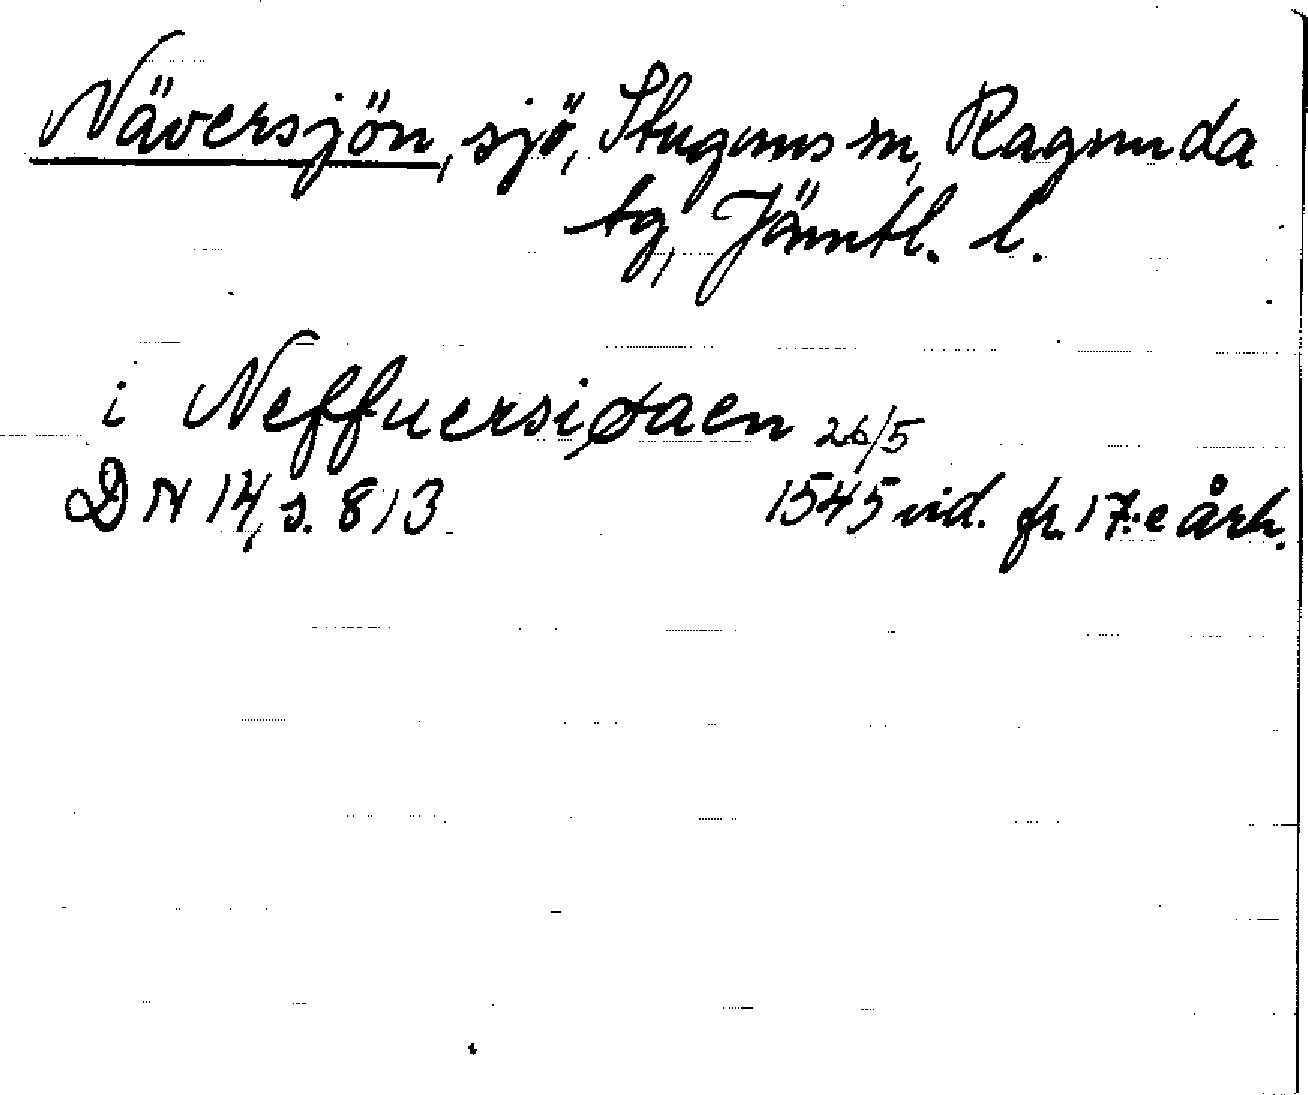 Näversjön, sjö, Stuguns sn, Ragunda
tg, Jämtl. l.
i Neffuersiøaen 26/5
DN 14, s. 813 1545 vid. fr. 17:e årh.